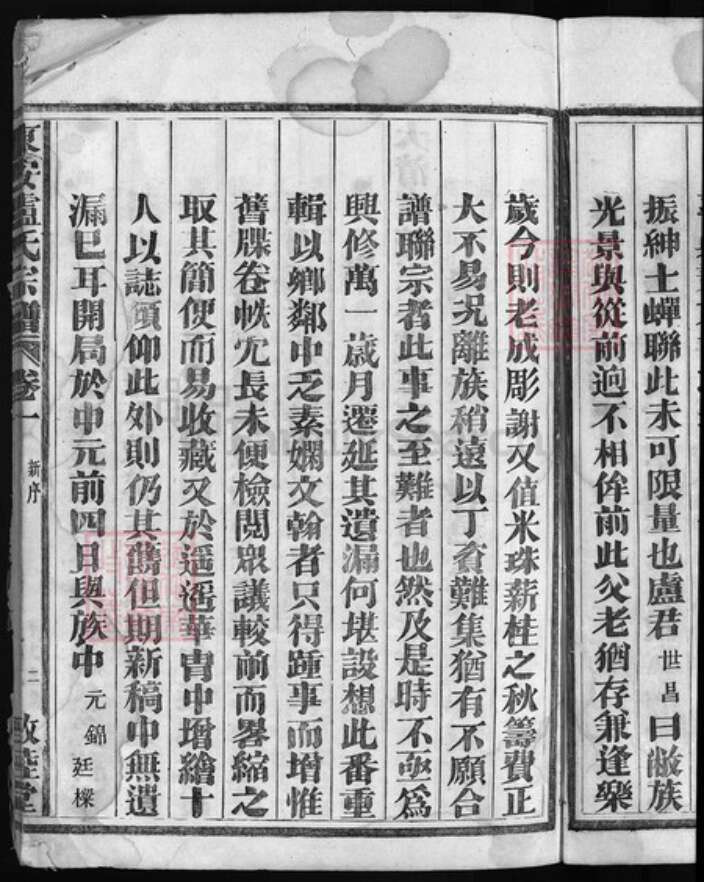 振紳士蟬聯此未可限量也盧君世昌曰敝族
光景與從前逈不相侔前此父老猶存兼逢樂
歲今則老成彫謝又值米珠薪桂之秋籌費正
大不易况離族稍遠以丁貧難集猶有不願合
譜聯宗者此事之至難者也然及是時不亟為
興修萬一歲月遷延其遺漏何堪設想此番重
輯以鄉鄰中乏素嫻文翰者只得踵事而增惟
舊牒卷帙冗長未便檢閱眾議較前而畧縮之
取其簡便而易收藏又於遥遥華冑中增繪十
人以誌頫仰此外則仍其舊但期新稿中無遺
漏已耳開局於中元前四日與族中元錦廷樑
東安盧氏宗譜 卷一 新序 二 敦睦堂